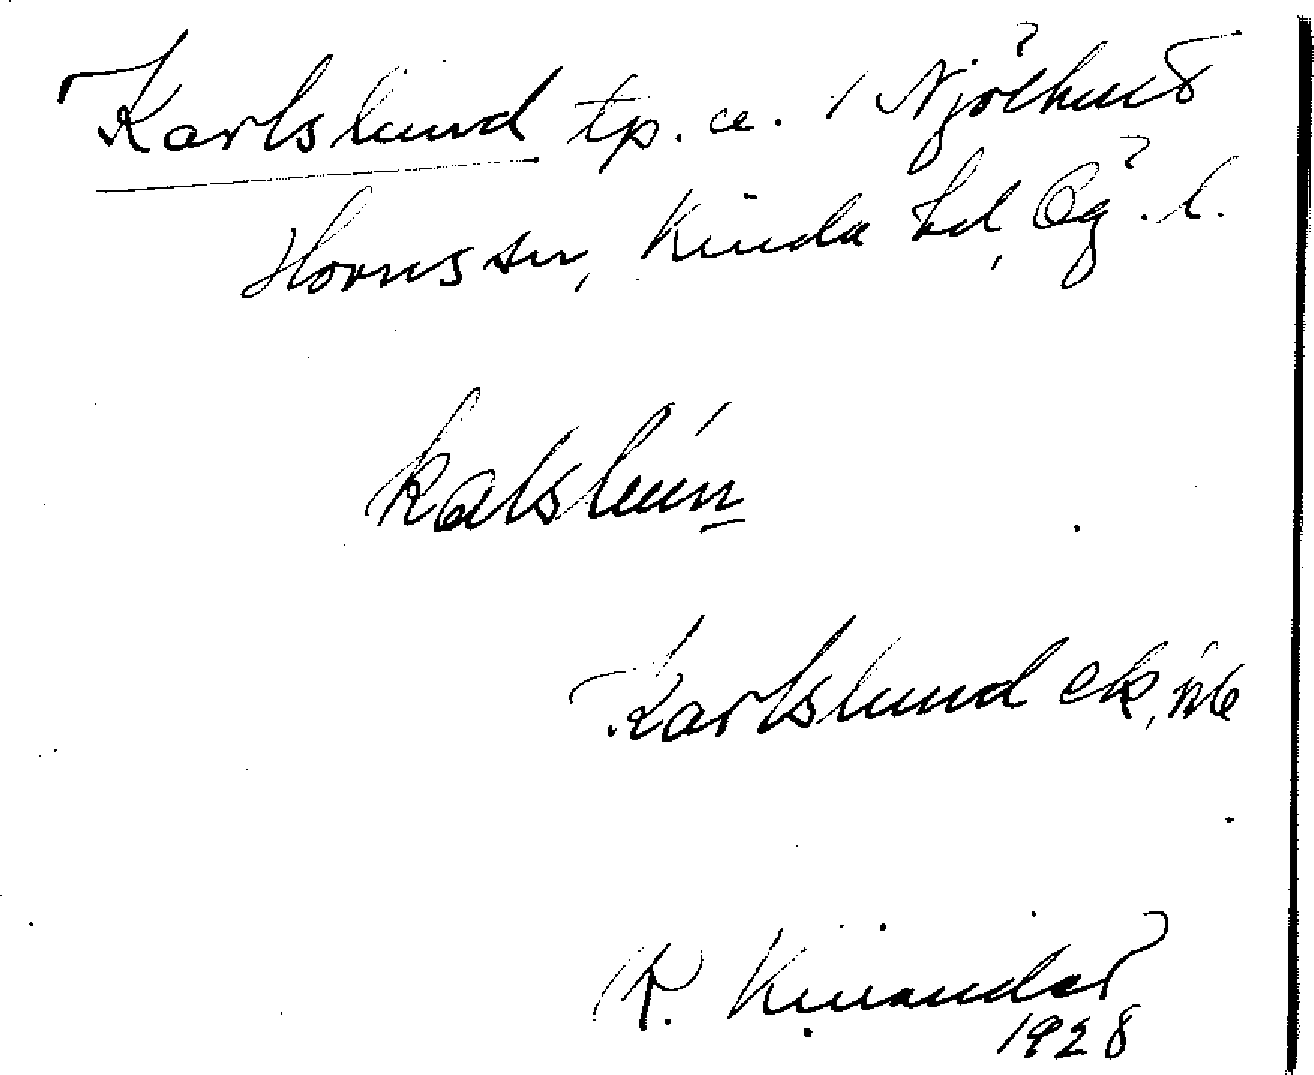 Karlslund tp. u. Njölhult
Horns sn, Kinda hd, Ög. l.
kalslún
Karlslund ek,
K. Kinander
1928